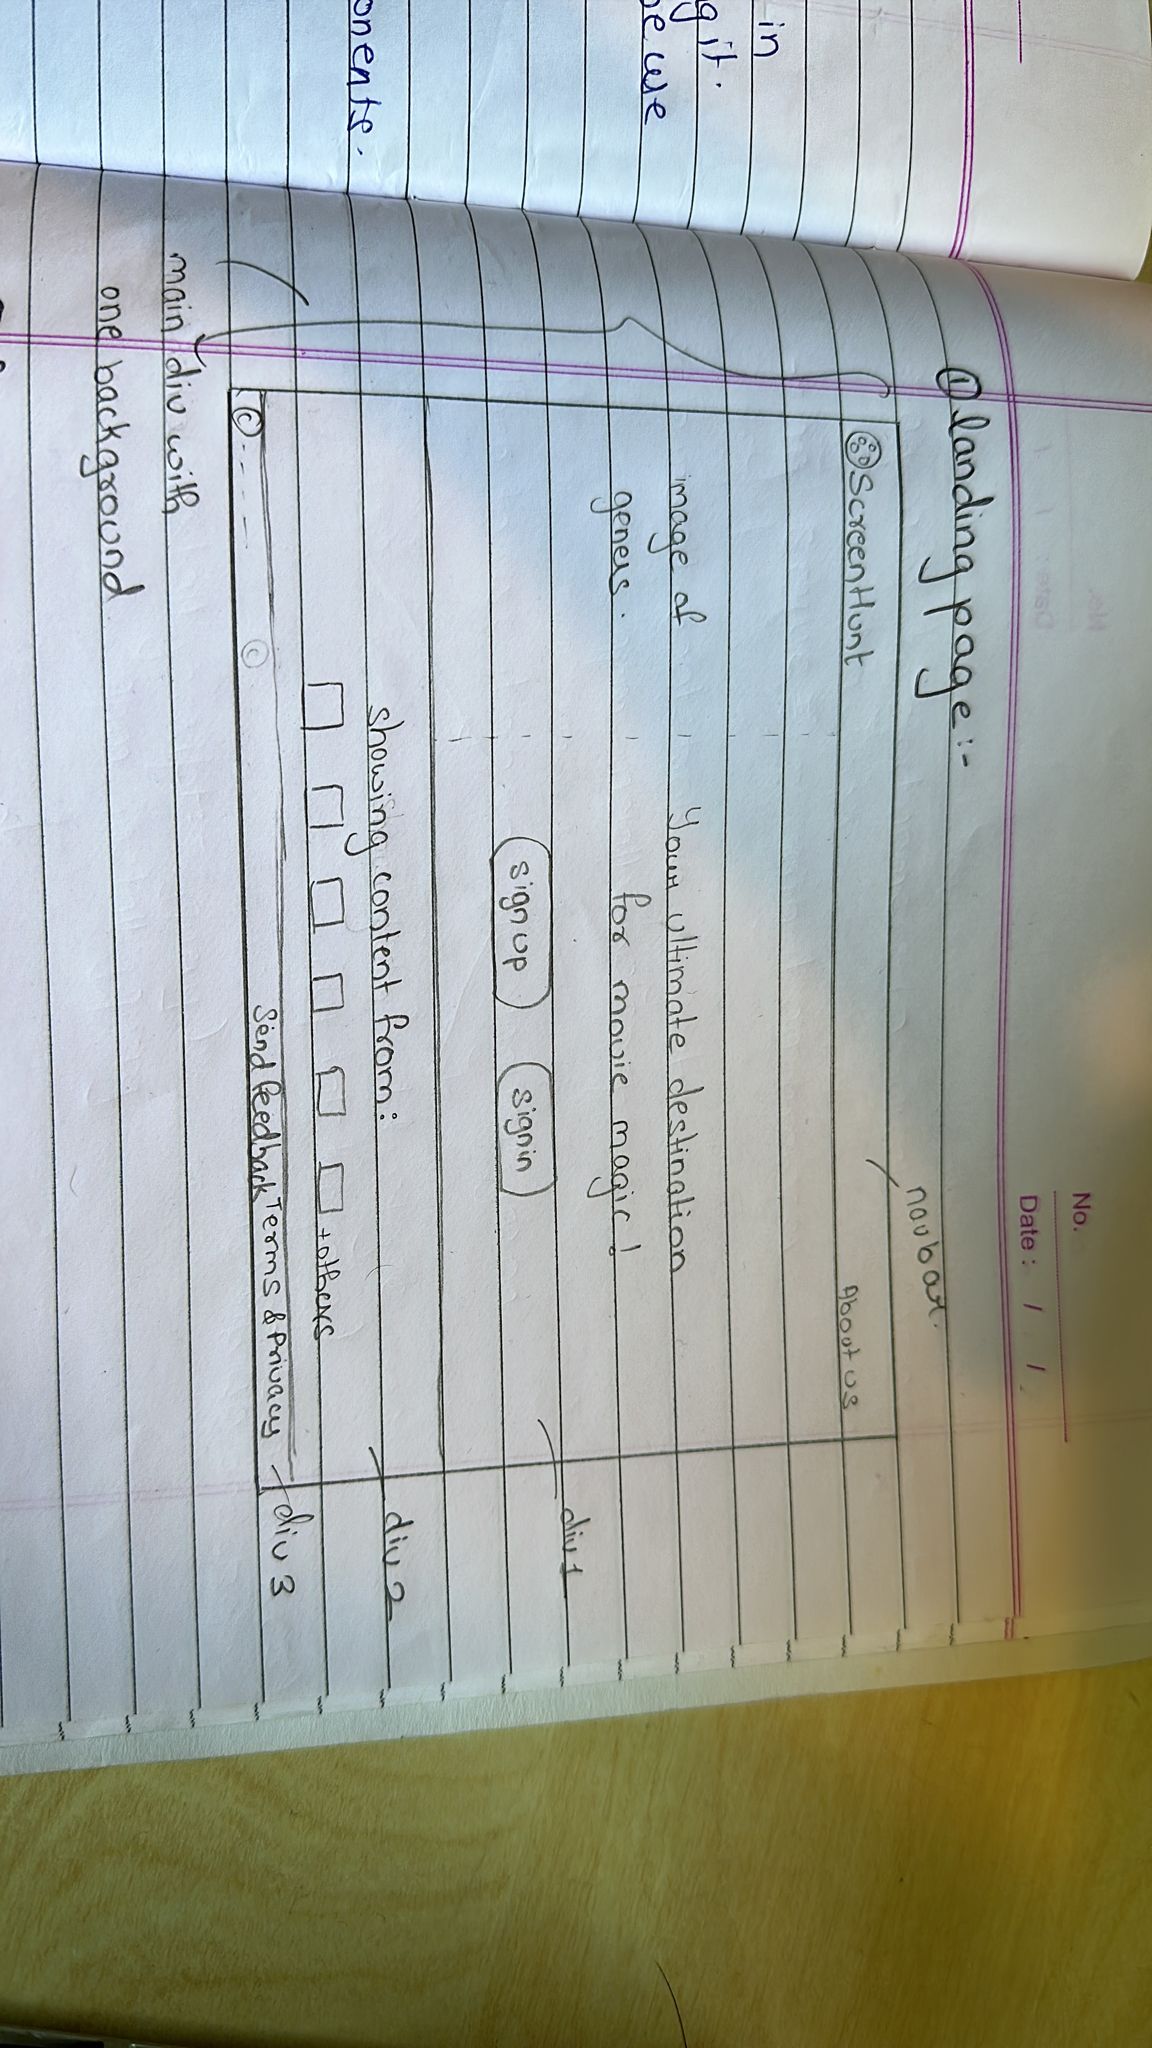 in
g it.
be we
onents.
No.
Date : / /
① landing page :-
navbar.
ScreenHunt
About us
image of
Your ultimate destination
geners.
for movie magic!
sign up
signin
div 1
showing content from:
div 2
+others
© - - - -
©
Send feedback
Terms & Privacy
div 3
main div with
one background